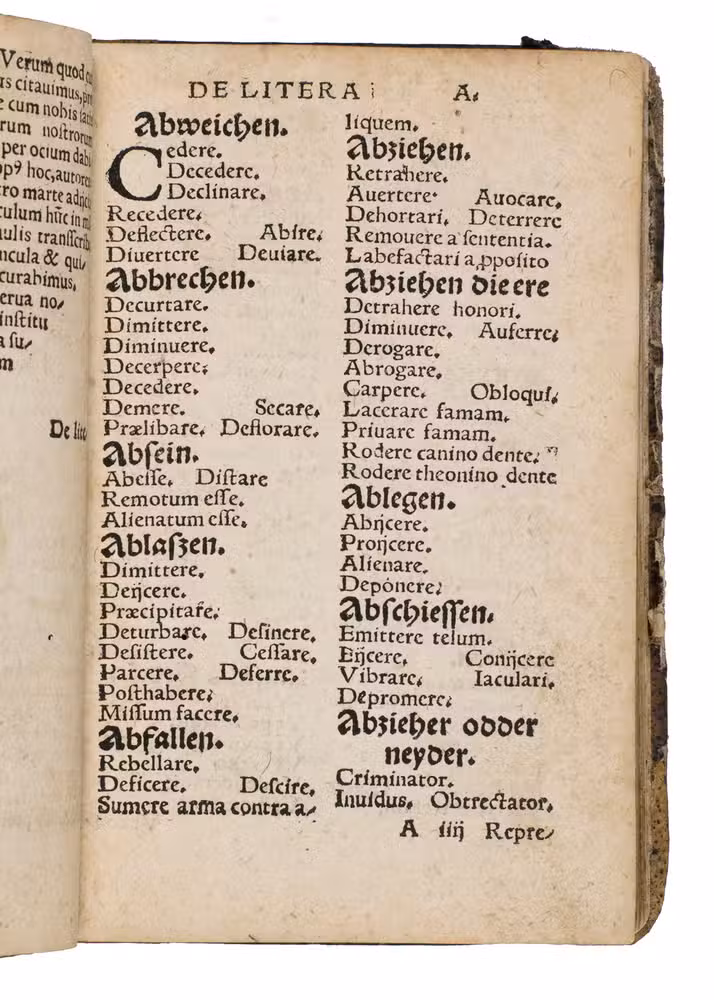 Verum quod
citauimus,
cum nobis
rum nostrorum
per ocium dabi
hoc, autore
tro marte
culum hūc in
transscrib
ncula & qui
curabimus,
erua no⸗
institu
a su⸗
m
De lite
DE LITERA A.
Abweichen.
Cedere.
Decedere.
Declinare.
Recedere.
Deflectere. Abire.
Diuertere Deuiare.
Abbrechen.
Decurtare.
Dimittere.
Diminuere.
Decerpere.
Decedere.
Demere. Secare.
Prælibare. Deflorare.
Abſein.
Abeſſe. Diſtare
Remotum eſſe.
Alienatum eſſe.
Ablaſzen.
Dimittere.
Deijcere.
Præcipitare.
Deturbare. Deſinere.
Deſiſtere. Ceſſare.
Parcere. Deferre.
Poſthabere.
Miſſum facere.
Abfallen.
Rebellare.
Deficere. Deſcire.
Sumere arma contra a⸗
liquem.
Abziehen.
Retrahere.
Auertere. Auocare.
Dehortari. Deterrere
Remouere a ſententia.
Labefactari a ꝓpoſito
Abziehen die ere
Detrahere honori.
Diminuere. Auferre.
Derogare.
Abrogare.
Carpere. Obloqui.
Lacerare famam.
Priuare famam.
Rodere canino dente.
Rodere theonino dente
Ablegen.
Abijcere.
Proijcere.
Alienare.
Deponere.
Abſchieſſen.
Emittere telum.
Eijcere. Conijcere
Vibrare. Iaculari.
Depromere.
Abzieher odder
neyder.
Criminator.
Inuidus. Obtrectator.
A iiij Repre⸗